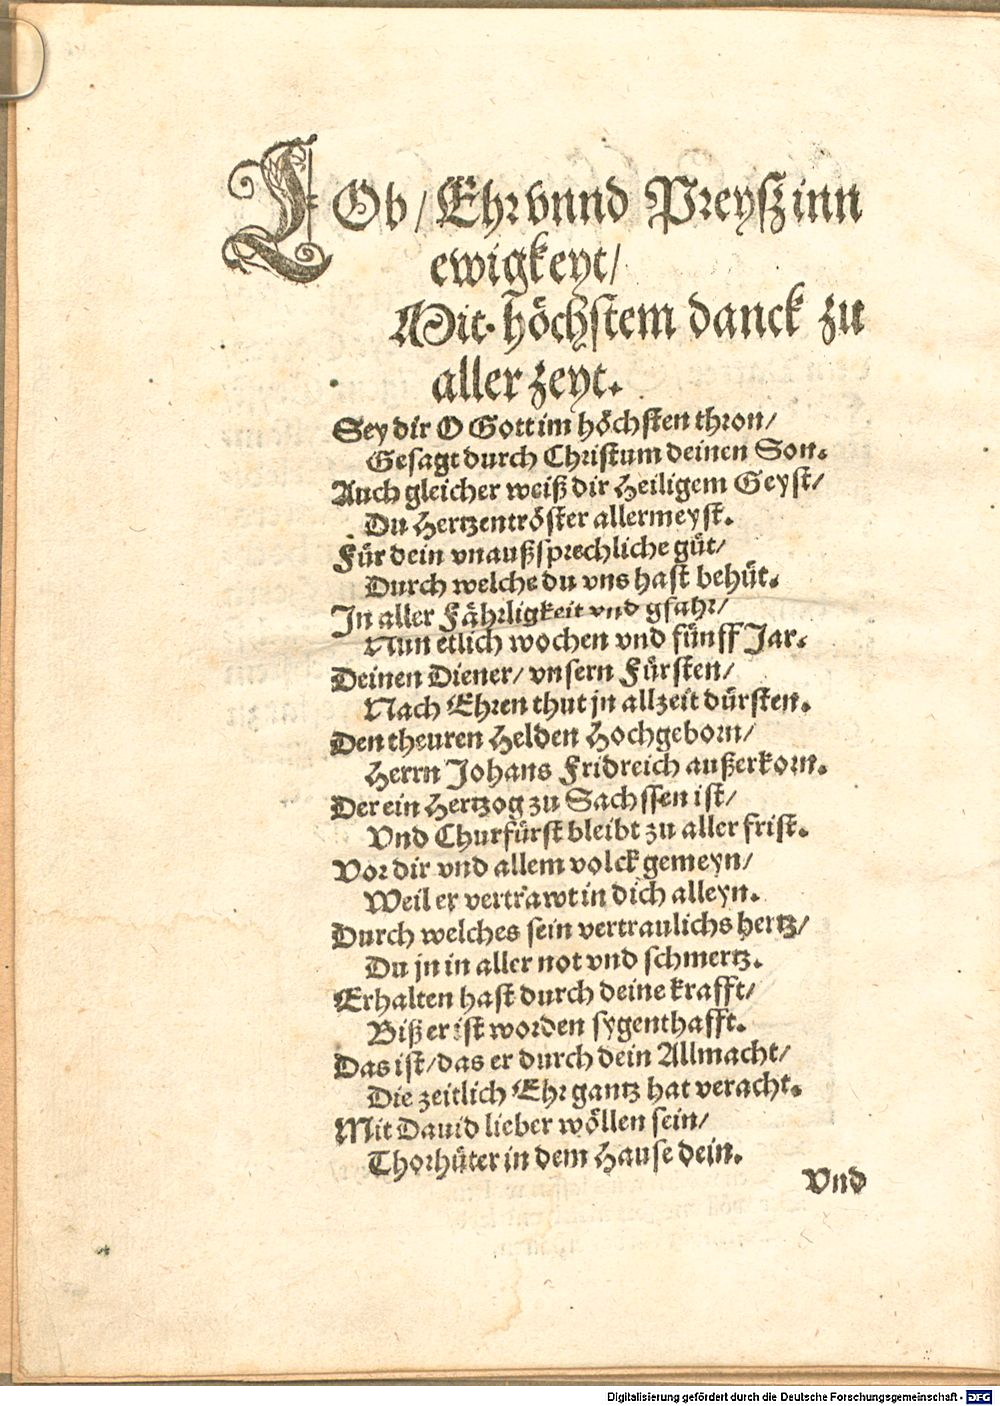 LOb / Ehr vnnd Preyß inn
ewigkeyt /
Mit höchstem danck zu
aller zeyt.
Sey dir O Gott im höchsten thron /
Gesagt durch Christum deinen Son.
Auch gleicher weiß dir Heiligem Geyst /
Du Hertzentröster allermeyst.
Für dein vnaußsprechliche güt /
Durch welche du vns hast behüt.
In aller Fährligkeit vnd gfahr /
Nun etlich wochen vnd fünff Jar.
Deinen Diener / vnsern Fürsten /
Nach Ehren thut jn allzeit dürsten.
Den theuren Helden Hochgeborn /
Herrn Johans Fridreich außerkorn.
Der ein Hertzog zu Sachssen ist /
Vnd Churfürst bleibt zu aller frist.
Vor dir vnd allem volck gemeyn /
Weil er vertrawt in dich alleyn.
Durch welches sein vertraulichs hertz /
Du jn in aller not vnd schmertz.
Erhalten hast durch deine krafft /
Biß er ist worden sygenthafft.
Das ist / das er durch dein Allmacht /
Die zeitlich Ehr gantz hat veracht.
Mit Dauid lieber wöllen sein /
Thorhüter in dem Hause dein.
Vnd
Digitalisierung gefördert durch die Deutsche Forschungsgemeinschaft - DFG